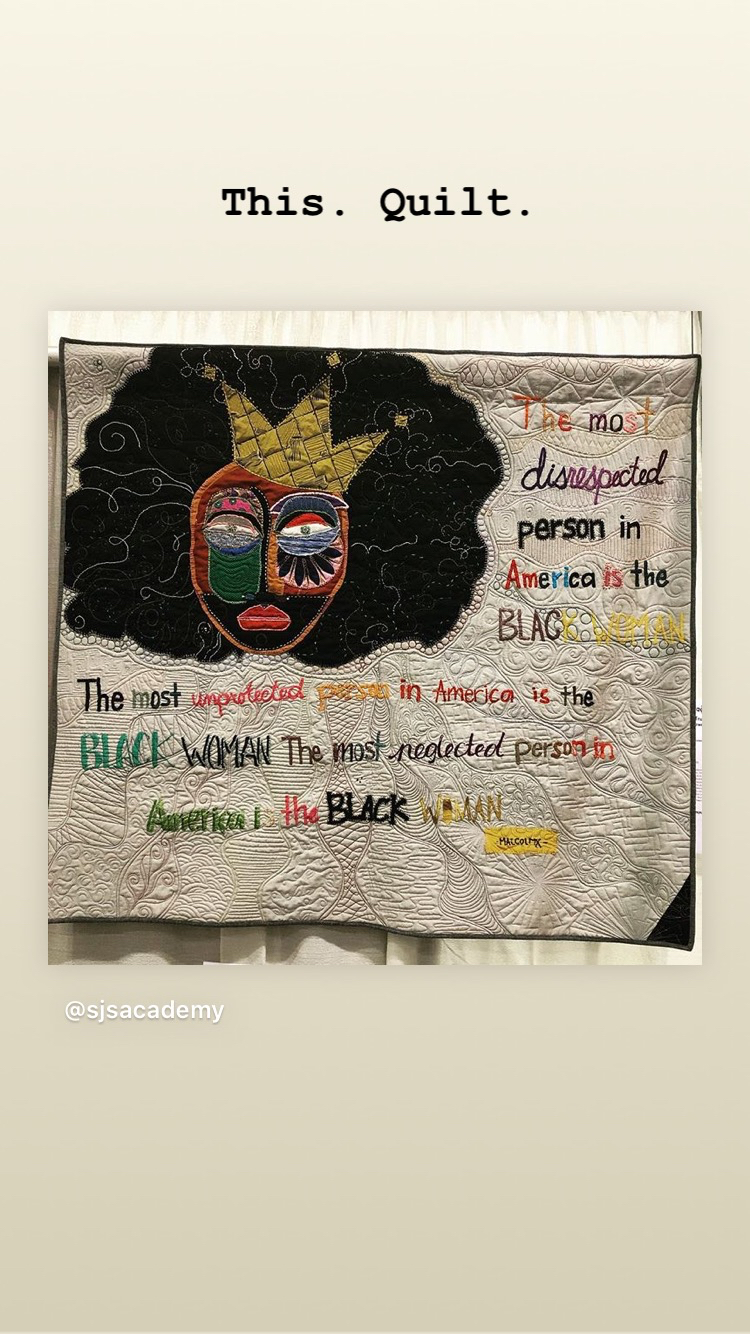 This. Quilt.
The most
disrespected
person in
America is the
BLACK WOMAN
The most unprotected person in America is the
BLACK WOMAN The most neglected person in
America is the BLACK WOMAN
-MALCOLM X-
@sjsacademy